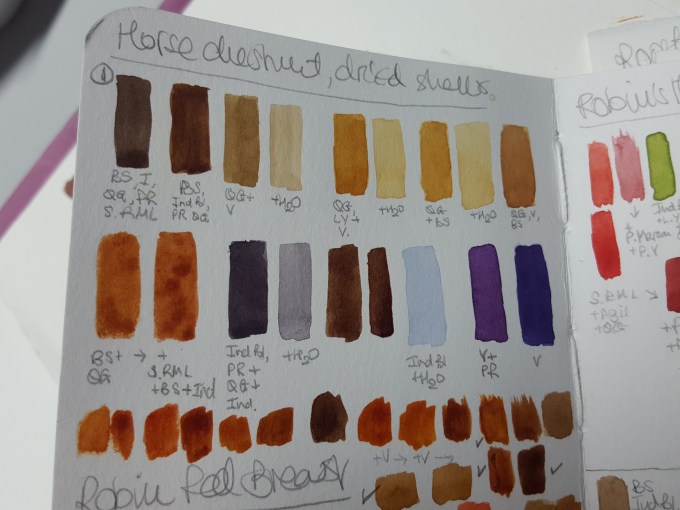 Horse chestnut, dried shells.
1
BS, I,
QG, PR
S.RML
BS,
Ind Bl,
PR QG
QG+
V
+H2O
QG,
LY+
V.
+H2O
QG
+BS
+H2O
QG, V,
BS
BS+ → +
QG
S.RML
+BS+Ind
Ind Bl,
PR+
QG+
Ind.
+H2O
Ind Bl
+H2O
V+
PR
V
+V → +V →
Robin Red Breast
Robin's
↓
Ind Bl
+L.Y
+ P.V
S.RML
+QG
BS
Ind Bl